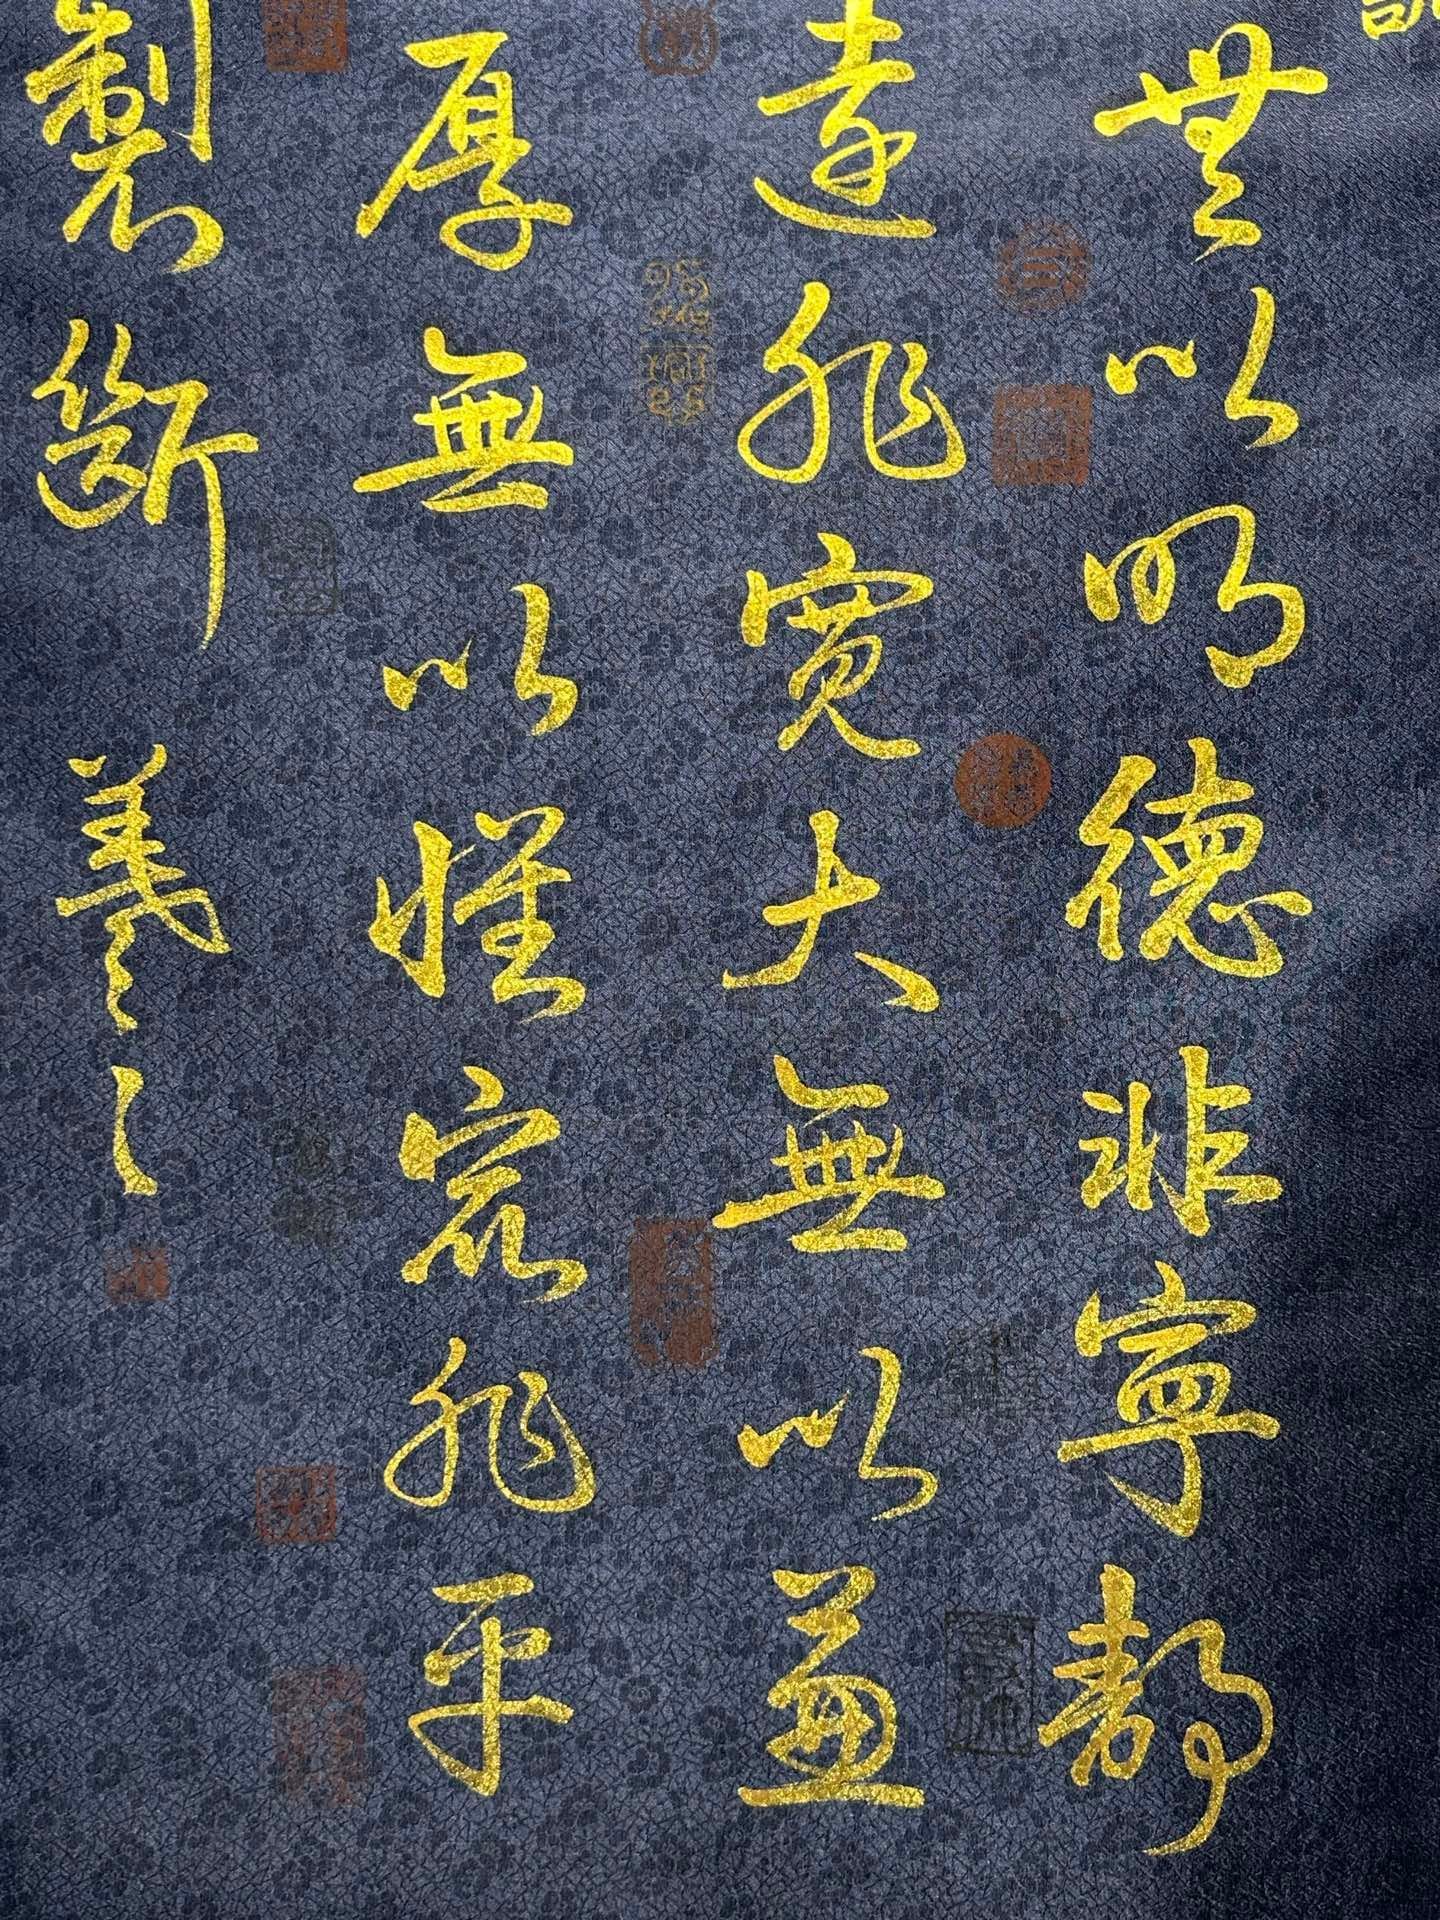 無以明德非寧靜
遠非寬大無以兼
厚無以懷眾非平
製斷 羲之